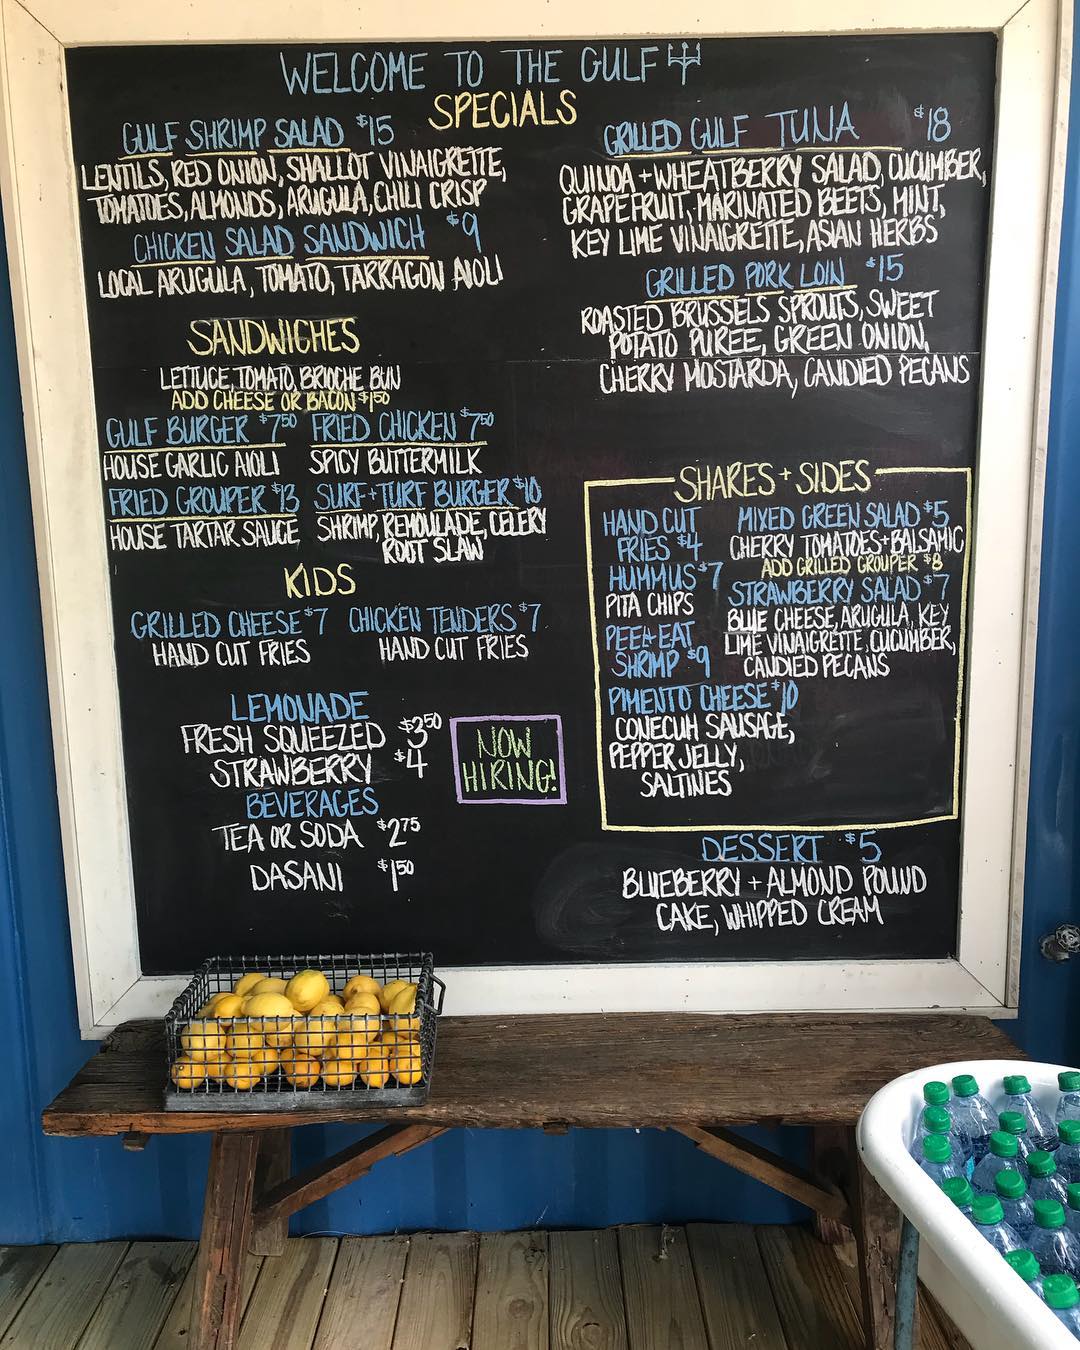 WELCOME TO THE GULF
SPECIALS
GULF SHRIMP SALAD $15
LENTILS, RED ONION, SHALLOT VINAIGRETTE,
TOMATOES, ALMONDS, ARUGULA, CHILI CRISP
CHICKEN SALAD SANDWICH $9
LOCAL ARUGULA, TOMATO, TARRAGON AIOLI
GRILLED GULF TUNA $18
QUINOA + WHEATBERRY SALAD, CUCUMBER,
GRAPEFRUIT, MARINATED BEETS, MINT,
KEY LIME VINAIGRETTE, ASIAN HERBS
GRILLED PORK LOIN $15
ROASTED BRUSSELS SPROUTS, SWEET
POTATO PUREE, GREEN ONION,
CHERRY MOSTARDA, CANDIED PECANS
SANDWICHES
LETTUCE, TOMATO, BRIOCHE BUN
ADD CHEESE OR BACON $1.50
GULF BURGER $7.50
HOUSE GARLIC AIOLI
FRIED CHICKEN $7.50
SPICY BUTTERMILK
FRIED GROUPER $13
HOUSE TARTAR SAUCE
SURF + TURF BURGER $10
SHRIMP, REMOULADE, CELERY
ROOT SLAW
KIDS
GRILLED CHEESE $7
HAND CUT FRIES
CHICKEN TENDERS $7
HAND CUT FRIES
LEMONADE
FRESH SQUEEZED $3.50
STRAWBERRY $4
BEVERAGES
TEA OR SODA $2.75
DASANI $1.50
NOW
HIRING!
SHARES + SIDES
HAND CUT
FRIES $4
HUMMUS $7
PITA CHIPS
PEEL+EAT
SHRIMP $9
PIMENTO CHEESE $10
CONECUH SAUSAGE,
PEPPER JELLY,
SALTINES
MIXED GREEN SALAD $5
CHERRY TOMATOES + BALSAMIC
ADD GRILLED GROUPER $8
STRAWBERRY SALAD $7
BLUE CHEESE, ARUGULA, KEY
LIME VINAIGRETTE, CUCUMBER,
CANDIED PECANS
DESSERT $5
BLUEBERRY + ALMOND POUND
CAKE, WHIPPED CREAM